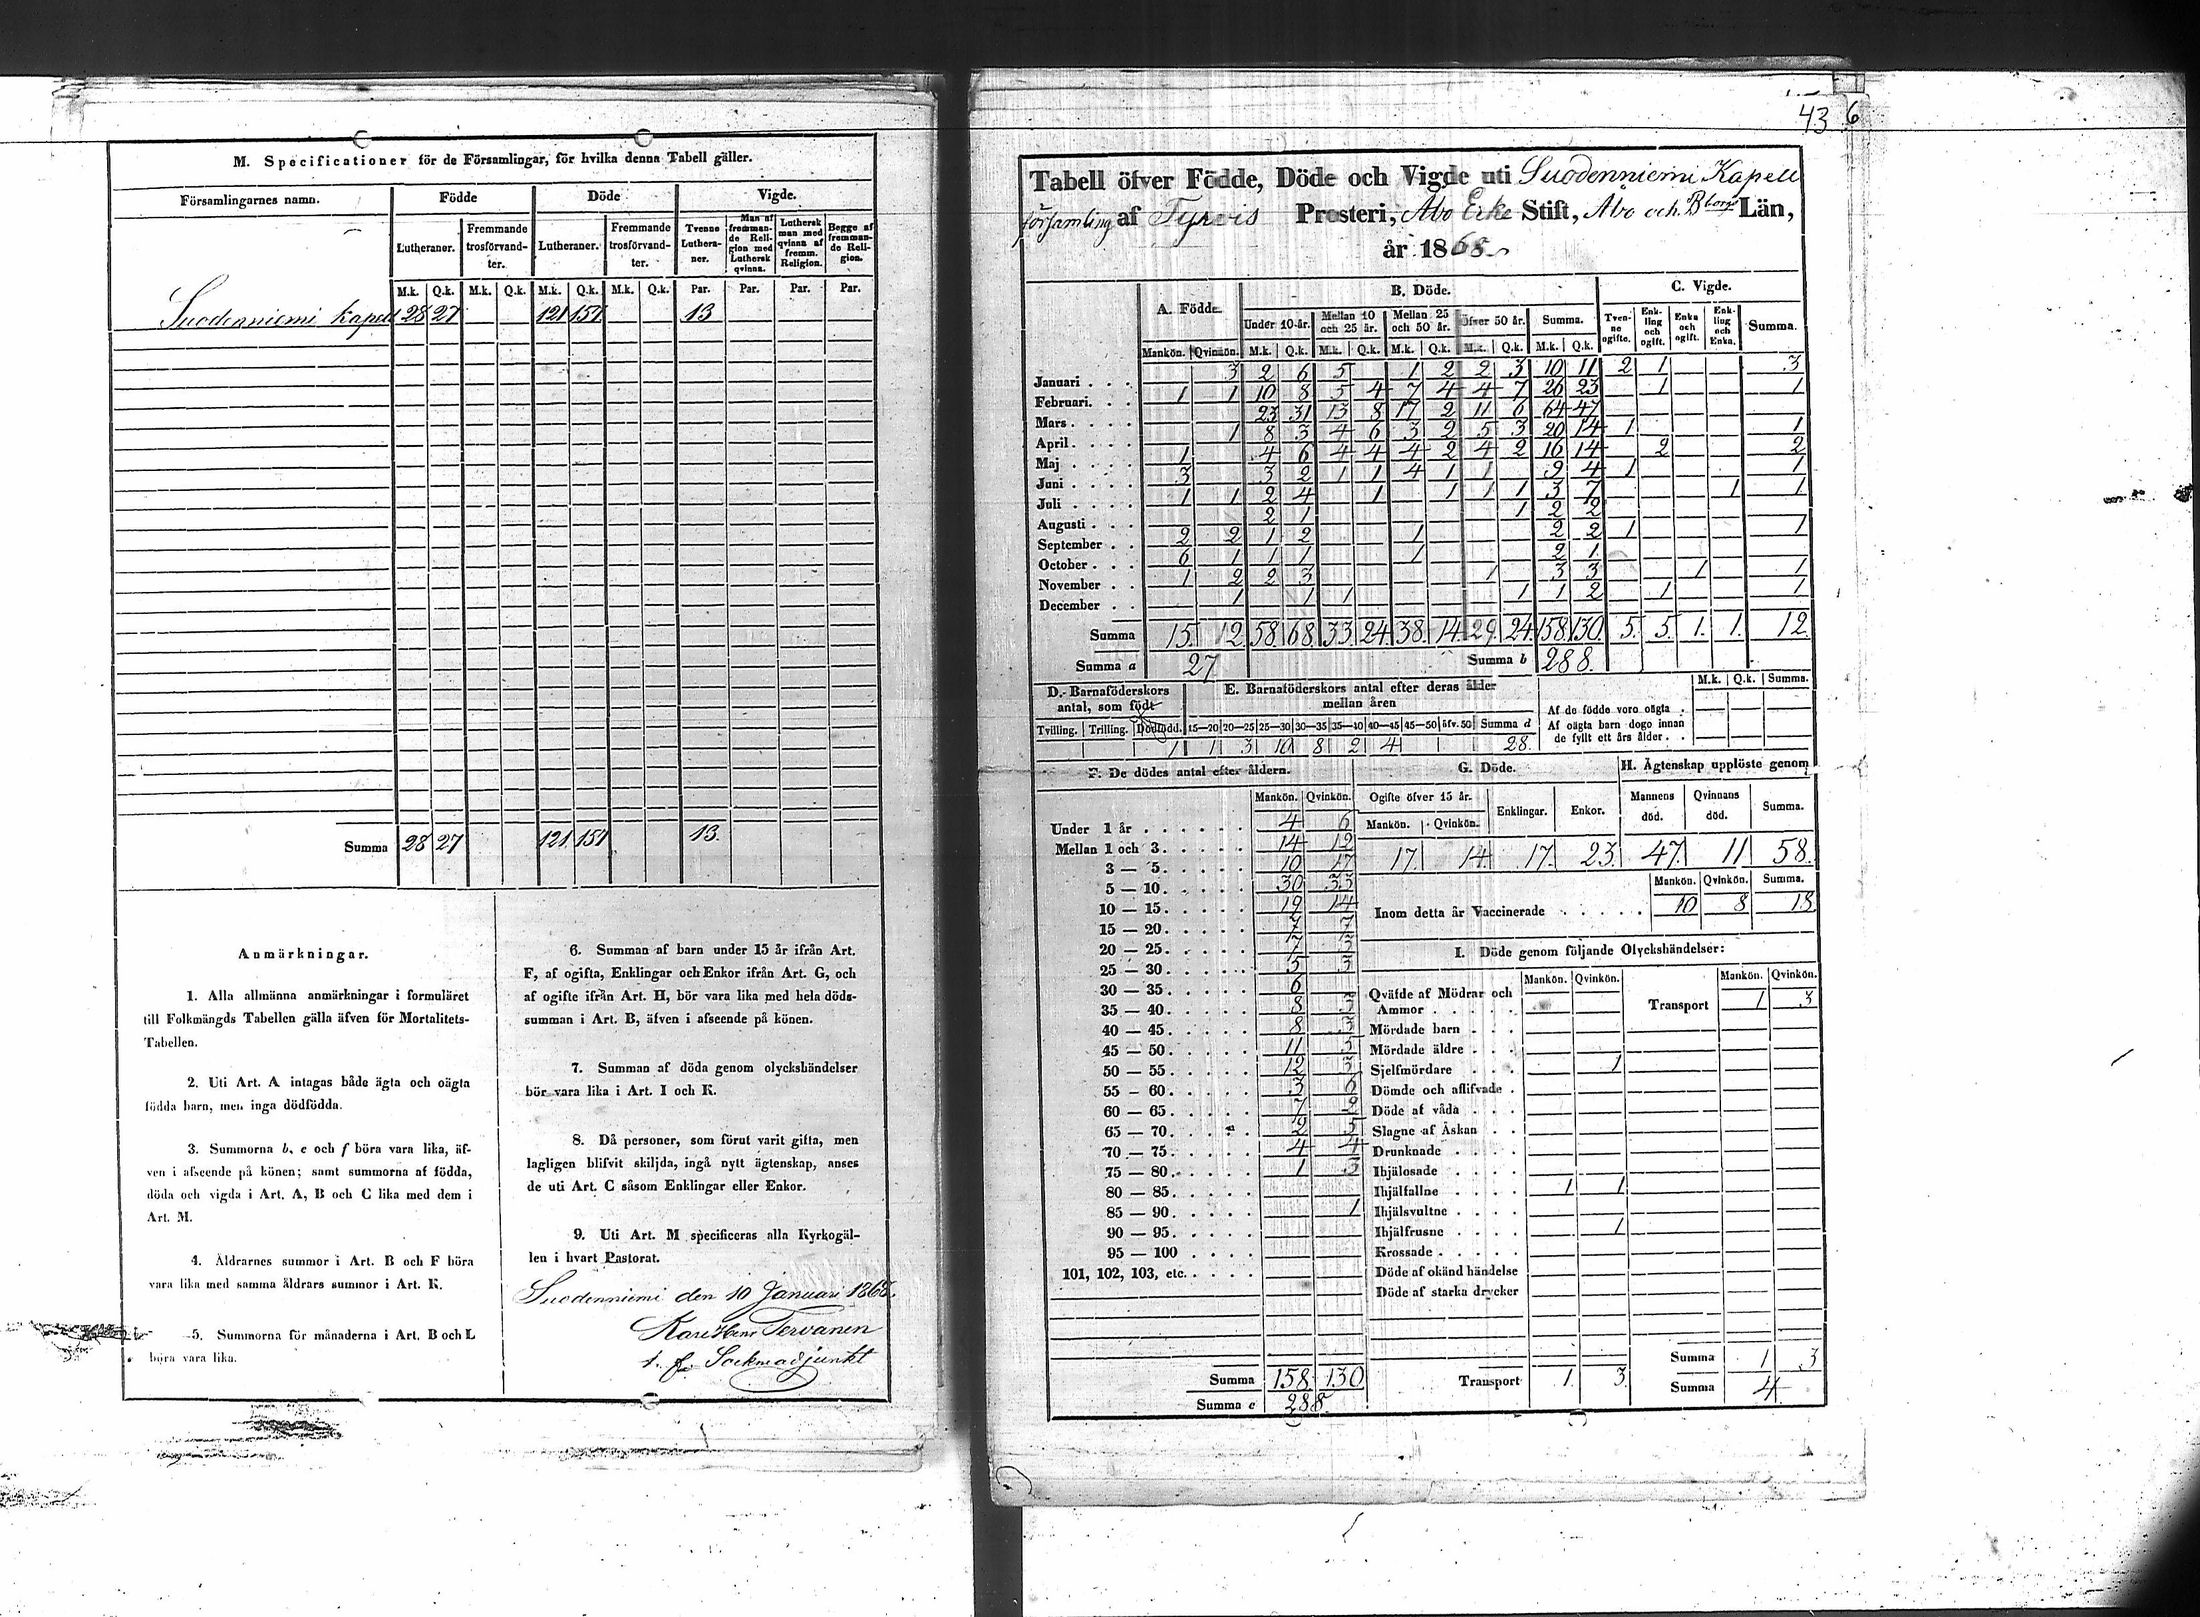 M. Specificationer för de Församlingar, för hvilka denna Tabell gäller.
Församlingarnes namn. Födde Döde Vigde.
Lutheraner. Fremmande trosförvandter. Lutheraner. Fremmande trosförvandter. Tvenne Lutheraner. Man af fremmande Religion med Luthersk qvinna. Luthersk man med qvinna af fremm. Religion. Begge af fremmande Religion.
M.k. Q.k. M.k. Q.k. M.k. Q.k. M.k. Q.k. Par. Par. Par. Par.
Suodenniemi kapell 28 27 121 151 13
Summa 28 27 121 151 13.
Anmärkningar.
1. Alla allmänna anmärkningar i formuläret
till Folkmängds Tabellen gälla äfven för Mortalitets-
Tabellen.
2. Uti Art. A intagas både ägta och oägta
födda barn, men inga dödfödda.
3. Summorna b, e och f böra vara lika, äf-
ven i afseende på könen; samt summorna af födda,
döda och vigda i Art. A, B och C lika med dem i
Art. M.
4. Åldrarnes summor i Art. B och F böra
vara lika med samma åldrars summor i Art. K.
5. Summorna för månaderna i Art. B och L
böra vara lika.
6. Summan af barn under 15 år ifrån Art.
F, af ogifta, Enklingar och Enkor ifrån Art. G, och
af ogifte ifrån Art. H, bör vara lika med hela döds-
summan i Art. B, äfven i afseende på könen.
7. Summan af döda genom olyckshändelser
bör vara lika i Art. I och K.
8. Då personer, som förut varit gifta, men
lagligen blifvit skiljda, ingå nytt ägtenskap, anses
de uti Art. C såsom Enklingar eller Enkor.
9. Uti Art. M specificeras alla Kyrkogäl-
len i hvart Pastorat.
Suodenniemi den 10 Januari 1868.
Tervanen
t. f. Socknadjunkt
43 6
Tabell öfver Födde, Döde och Vigde uti Suodenniemi Kapell
församling af Tyrvis Prosteri, Åbo Erke Stift, Åbo och Bborgs Län,
år 1868
A. Födde. B. Döde. C. Vigde.
Under 10 år. Mellan 10 och 25 år. Mellan 25 och 50 år. Öfver 50 år. Summa. Tvenne ogifte. Enkling och ogift. Enka och ogift. Enkling och Enka. Summa.
Mankön. Qvinnön. M.k. Q.k. M.k. Q.k. M.k. Q.k. M.k. Q.k. M.k. Q.k.
Januari 3 2 6 5 1 2 2 3 10 11 2 1 3
Februari. 1 1 10 8 5 4 7 4 4 7 26 23 1 1
Mars 23 31 13 8 17 2 11 6 64 47
April 1 8 3 4 6 3 2 5 3 20 14 1 1
Maj 1 4 6 4 4 4 2 4 2 16 14 2 2
Juni 3 3 2 1 1 4 1 1 9 4 1 1
Juli 1 1 2 4 1 1 1 1 3 7 1 1
Augusti 2 1 1 2 2
September 2 2 1 2 1 2 2 1 1
October 6 1 1 1 1 2 1
November 1 2 2 3 1 3 3 1 1
December 1 1 1 1 1 2 1 1
Summa 15. 12 58 68 33 24 38. 14 29. 24 158. 130. 5. 5. 1. 1. 12.
Summa a 27 Summa b 288.
D. Barnaföderskors antal, som födt E. Barnaföderskors antal efter deras ålder mellan åren M.k. Q.k. Summa.
Tvilling. Trilling. Dödfödd. 15—20 20—25 25—30 30—35 35—40 40—45 45—50 öfv. 50 Summa d
1 1 3 10 8 2 4 28.
Af de födde voro oägta
Af oägta barn dogo innan
de fyllt ett års ålder
F. De dödes antal efter åldern. G. Döde. H. Ägtenskap upplöste genom
Mankön. Qvinkön.
Under 1 år 4 6
Mellan 1 och 3 14 12
3 — 5 10 17
5 — 10 30 33
10 — 15 19 14
15 — 20 7 7
20 — 25 7 3
25 — 30 5 3
30 — 35 6
35 — 40 8 3
40 — 45 8 3
45 — 50 11 5
50 — 55 12 3
55 — 60 3 6
60 — 65 7 2
65 — 70 2 5
70 — 75 4 4
75 — 80 1 3
80 — 85
85 — 90 1
90 — 95
95 — 100
101, 102, 103, etc.
Summa 158. 130
Summa e 288.
Ogifte öfver 15 år. Enklingar. Enkor. Mannens död. Qvinnans död. Summa.
Mankön. Qvinkön.
17. 14. 17. 23. 47. 11 58.
Mankön. Qvinkön. Summa.
Inom detta år Vaccinerade 10 8 18
I. Döde genom följande Olyckshändelser:
Mankön. Qvinkön. Mankön. Qvinkön.
Qväfde af Mödrar och
Ammor
Transport 1 3
Mördade barn
Mördade äldre
Sjelfmördare 1
Dömde och aflifvade
Döde af våda
Slagne af Åskan
Drunknade
Ihjälosade
Ihjälfallne 1 1
Ihjälsvultne
Ihjälfrusne 1
Krossade
Döde af okänd händelse
Döde af starka drycker
Summa 1 3
Transport 1. 3. Summa 4.